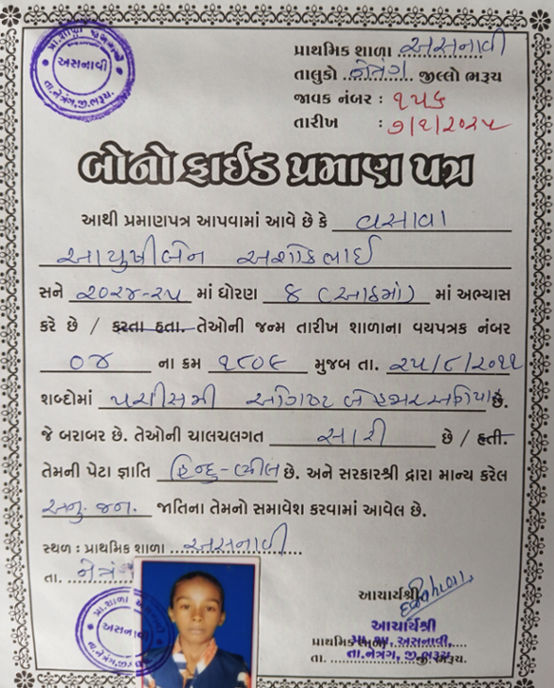 પ્રા.શાળા
અસનાવી
તા.નેત્રંગ,જી.ભરૂચ.
પ્રાથમિક શાળા અસનાવી
તાલુકો નેત્રંગ જીલ્લો ભરૂચ
જાવક નંબર : ૧૫૬
તારીખ : ૭/૨/૨૦૨૫
બોનોફાઈડ પ્રમાણ પત્ર
આથી પ્રમાણપત્ર આપવામાં આવે છે કે વસાવા
આયુષીબેન અશોકભાઈ
સને ૨૦૨૪-૨૫ માં ધોરણ ૮ (આઠમાં) માં અભ્યાસ
કરે છે / કરતા હતા. તેઓની જન્મ તારીખ શાળાના વયપત્રક નંબર
૦૪ ના ક્રમ ૧૮૦૯ મુજબ તા. ૨૫/૮/૨૦૧૧
શબ્દોમાં પચીસમી ઓગષ્ટ બે હજાર અગિયાર છે.
જે બરાબર છે. તેઓની ચાલચલગત સારી છે / હતી.
તેમની પેટા જ્ઞાતિ હિન્દુ-ભીલ છે. અને સરકારશ્રી દ્રારા માન્ય કરેલ
અનુ. જન. જાતિના તેમનો સમાવેશ કરવામાં આવેલ છે.
સ્થળ : પ્રાથમિક શાળા અસનાવી
તા. નેત્રંગ
પ્રા.શાળા અસનાવી
અસનાવી
તા.નેત્રંગ,જી.ભરૂચ.
આચાર્યશ્રી
આચાર્યશ્રી
પ્રાથમિક શાળા
પ્રા. શા. અસનાવી,
તા. જી. ભરૂચ.
તા.નેત્રંગ, જી.ભરૂચ.